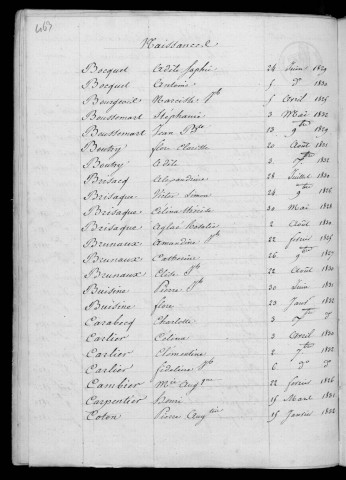 Naissances
Bocquet Adèle Sophie 24 Juin 1829
Bocquet Antoine 5 do 1830
Bourgeois Narcisse 5 Avril 1825
Boussemart Stéphanie 3 Mai 1832
Boussemart Jean Bte 13 9bre 1829
Boutry flore Clarisse 20 Août 1831
Boutry Adèle 3 7bre 1832
Brisacq Alexandrine 28 Juillet 1830
Brisaque Victor Simon 24 9bre 1826
Brisaque Célina Thérèse 30 Mai 1828
Brisaque Aglaé Rosalie 2 Août 1830
Brunaux Amandine 22 février 1825
Brunaux Catherine 26 9bre 1827
Brunaux Elise 22 Août 1830
Buisine Pierre 20 Juin 1831
Buisine flore 23 Janv 1832
Carabecq Charlotte 3 7bre do
Carlier Célina 3 Avril 1830
Carlier Clémentine 2 7bre 1832
Carlier fidéline 2 do do
Cambier Mie Aug 22 février 1826
Carpentier Henri 15 Mars 1831
Coton Pierre Aug 15 Janvier 1832